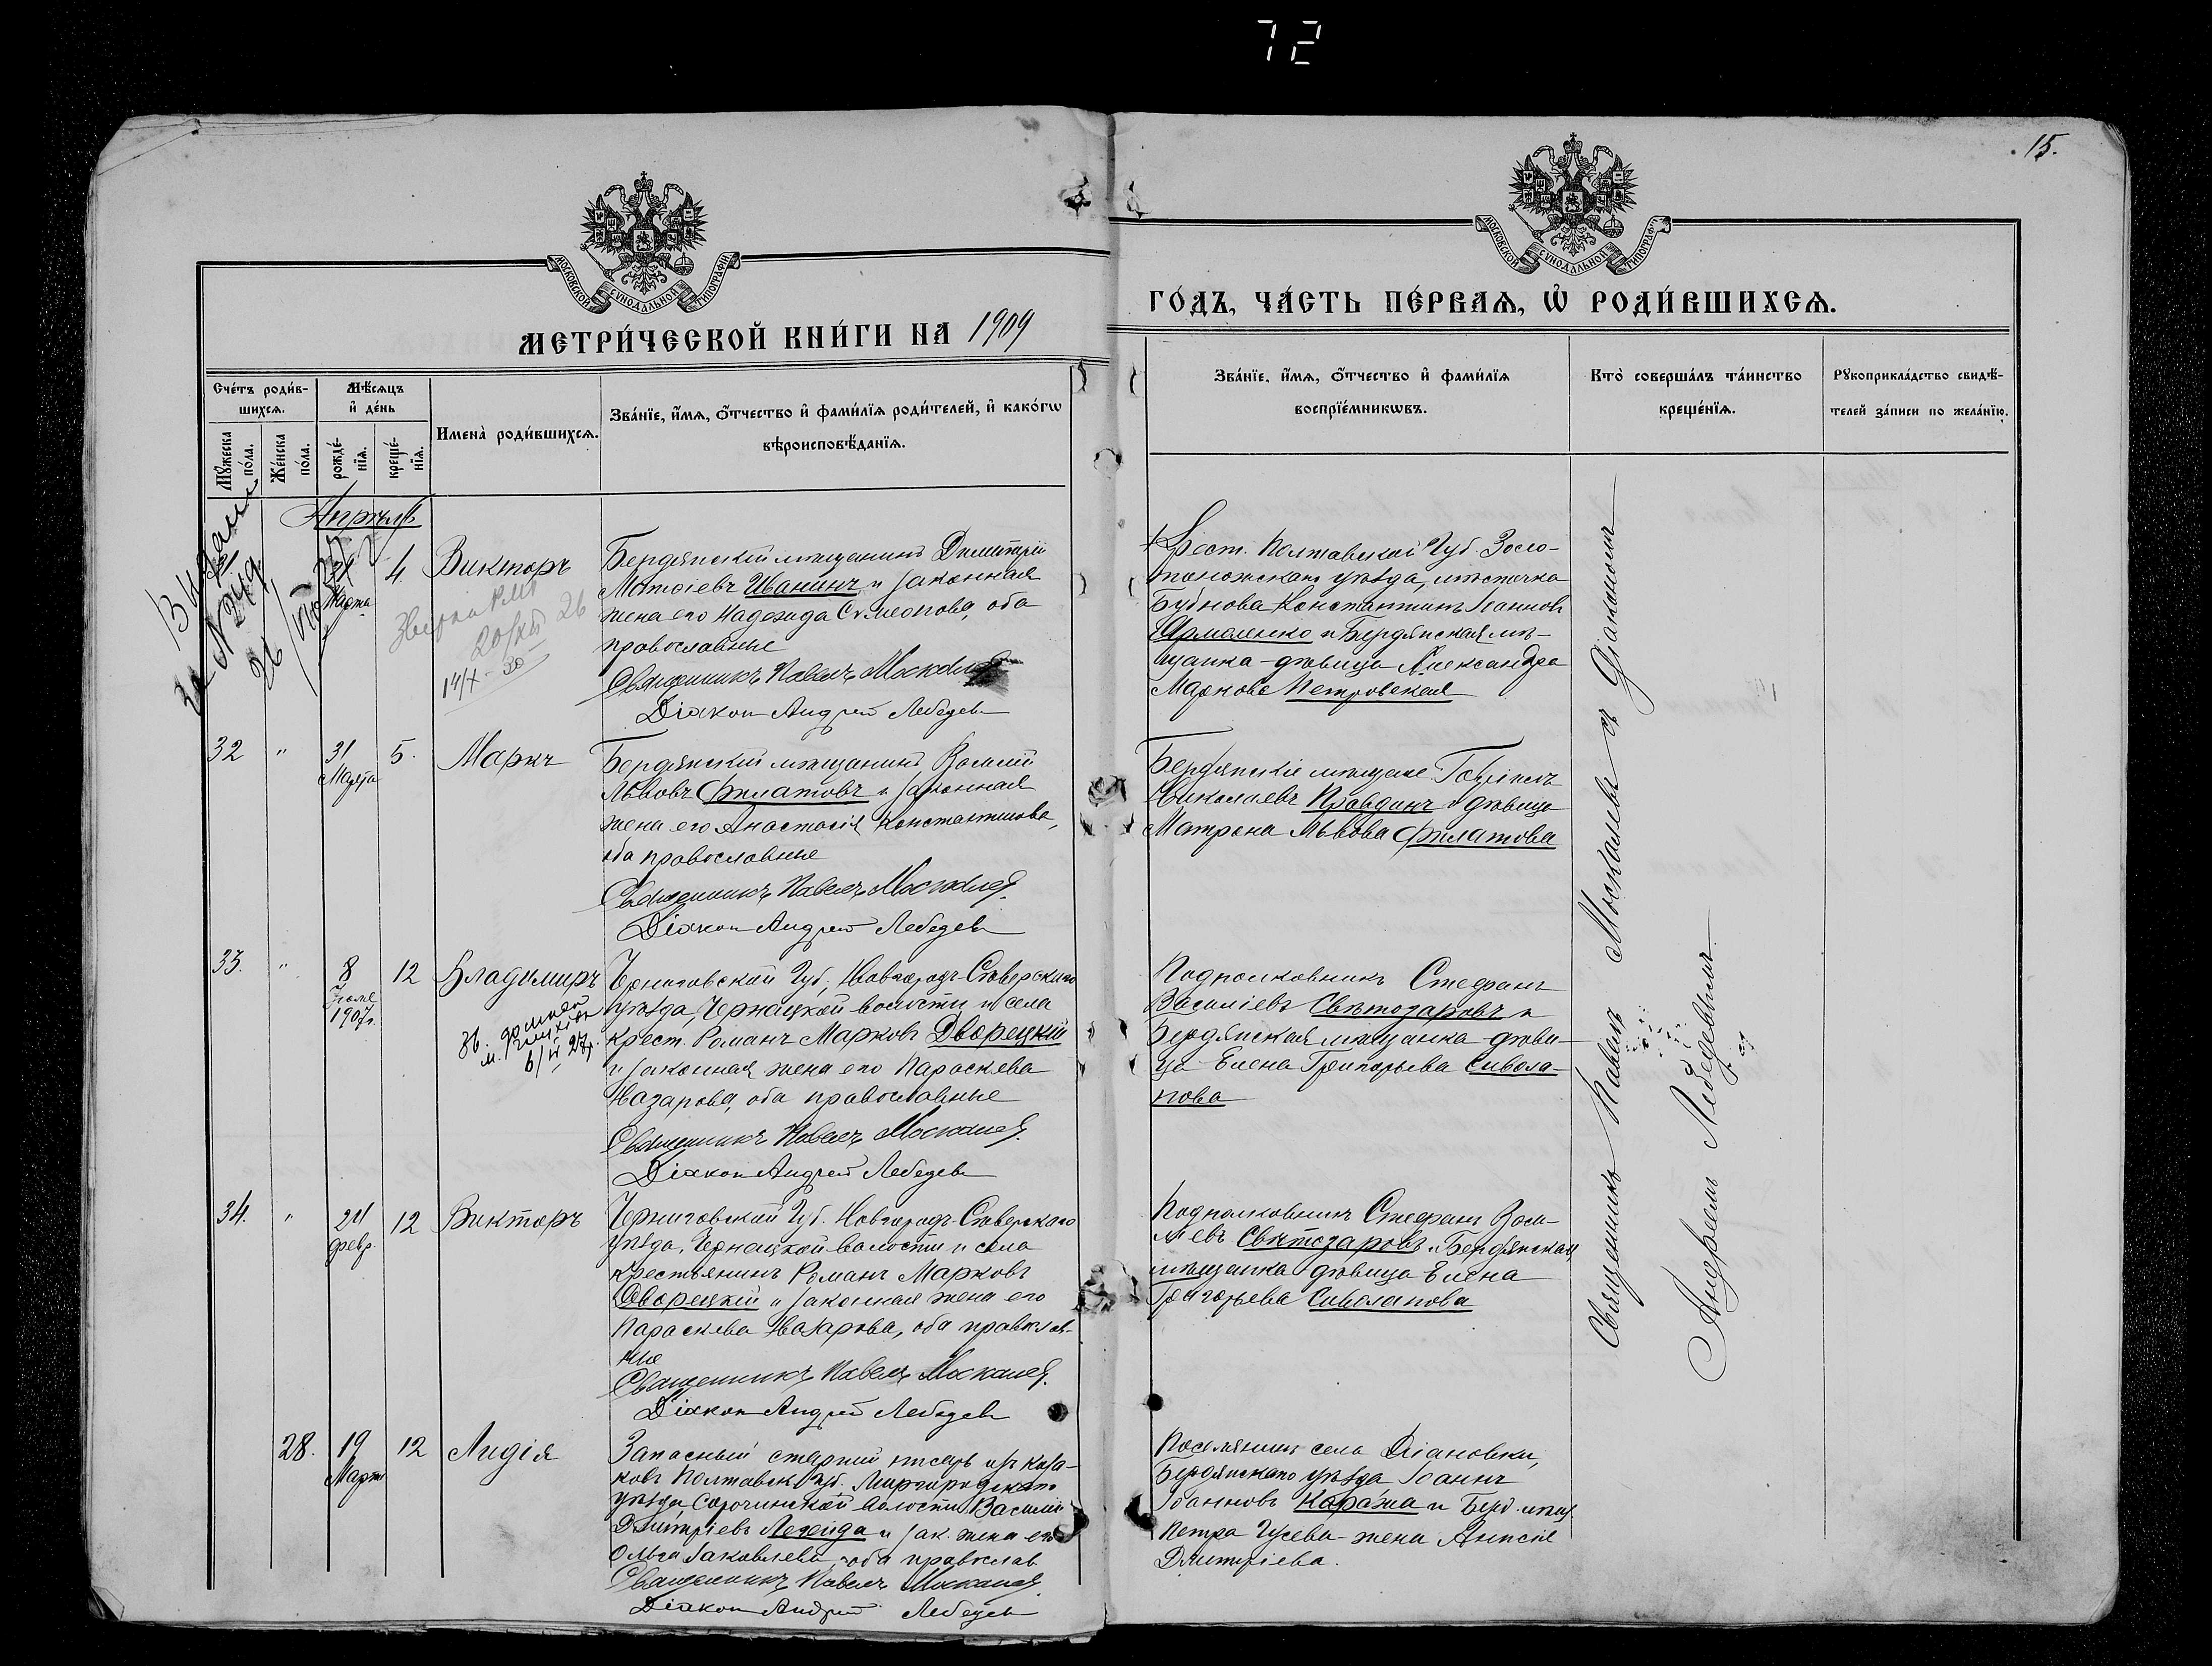 72
15.
МОСКОВСКОЙ СѴНОДАЛЬНОЙ ТИПОГРАФІИ
МЕТРИ́ЧЕСКОЙ КНИ́ГИ НА 1909
МОСКОВСКОЙ СѴНОДАЛЬНОЙ ТИПОГРАФІИ
ГО́ДЪ, ЧА́СТЬ ПЕ́РВАѦ, Ѡ҆ РОДИ́ВШИХСѦ.
Сче́тъ роди́в-
шихсѧ.
Мꙋ́жеска
по́ла.
Же́нска
по́ла.
Мѣ́сѧцъ
и҆ де́нь
рожде́-
нїѧ.
креще́-
нїѧ.
Имена̀ роди́вшихсѧ.
Зва́нїе, и҆́мѧ, ѻ҆́тчество и҆ фами́лїѧ роди́телей, и҆ како́гѡ
вѣроисповѣ́данїѧ.
Зва́нїе, и҆́мѧ, ѻ҆́тчество и҆ фами́лїѧ
воспрїе́мникѡвъ.
Кто̀ соверша́лъ та́инство
креще́нїѧ.
Рꙋкоприкла́дство свидѣ́-
телей за́писи по жела́нїю.
Апрѣль
Марта
4
Викторъ
Бердянскій мѣщанинъ Димитрій
Иванинъ и законная
жена его Надежда Симеонова, оба
православные
Священникъ Павелъ Москалевъ
Діаконъ Андрей Лебедевъ
14/X-20
Крест. Полтавской Губ. Золо-
тоношскаго уѣзда, мѣстечка
Константинъ Іоанновъ
Ярмоленко и Бердянская мѣ-
щанка - дѣвица Александра
Маркова Петровская
32 " 31 5. Маркъ
Марта
Бердянскій мѣщанинъ
Львовъ Филатовъ и законная
жена его Анастасія Константинова,
оба православные
Священникъ Павелъ Москалевъ
Діаконъ Андрей Лебедевъ
Бердянскіе мѣщане Гавріилъ
Николаевъ Правдинъ и дѣвица
Матрона Львова Филатова
33. " 8 12 Владимиръ
1907г.
Черниговской Губ., Новгородъ-Сѣверскаго
уѣзда, Чернацкой волости и села
крест. Романъ Марковъ Дворецкій
и законная жена его Параскева
Назарова, оба православные
Священникъ Павелъ Москалевъ
Діаконъ Андрей Лебедевъ
Подполковникъ Стефанъ
Василіевъ Свѣтозаровъ и
Бердянская мѣщанка - дѣви-
ца Елена Григорьева Сивола-
пова
34. " 24 12 Викторъ
февр.
Черниговской Губ. Новгородъ-Сѣверскаго
уѣзда, Чернацкой волости и села
крестьянинъ Романъ Марковъ
Дворецкій и законная жена его
Параскева Назарова, оба православ-
ные
Священникъ Павелъ Москалевъ
Діаконъ Андрей Лебедевъ
Подполковникъ Стефанъ Васи-
ліевъ Свѣтозаровъ и Бердянская
мѣщанка дѣвица Елена
Григорьева Сиволапова
28. 19 12 Лидія
Марта
Запасный старшій писарь изъ каза-
ковъ Полтавск. Губ. Миргородскаго
уѣзда Сорочинской волости Василій
Дмитріевъ и зак. жена его
Ольга Іаковлева, оба православ
Священникъ Павелъ Москалевъ
Діаконъ Андрей Лебедевъ
Поселянинъ села Діановки,
Бердянскаго уѣзда Іоаннъ
Іоанновъ Каража и Берд. мѣщ.
Петра Гусева - жена
Дмитріева.
Священникъ Павелъ Москалевъ съ Діакономъ
Андреемъ Лебедевымъ